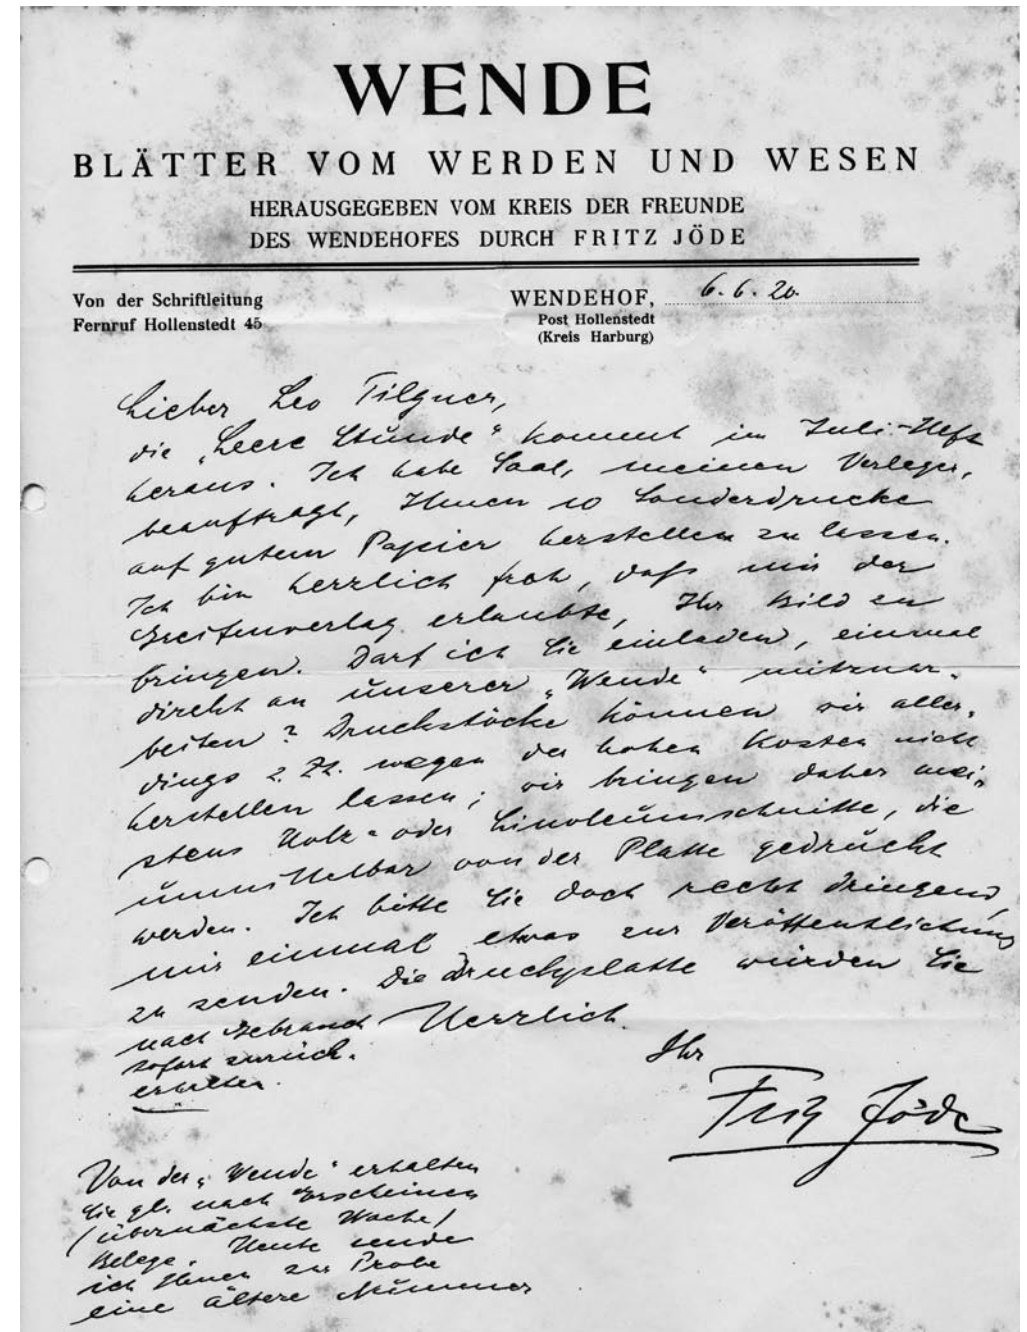 WENDE
BLÄTTER VOM WERDEN UND WESEN
HERAUSGEGEBEN VOM KREIS DER FREUNDE
DES WENDEHOFES DURCH FRITZ JÖDE
Von der Schriftleitung
Fernruf Hollenstedt 45
WENDEHOF, 6.6.20.
Post Hollenstedt
(Kreis Harburg)
Lieber Leo Tilgner,
die „Leere Stunde“ kommt im Juli-Heft
heraus. Ich habe Saal, meinen Verleger,
beauftragt, Ihnen 10 Sonderdrucke
auf gutem Papier herstellen zu lassen.
Ich bin herzlich froh, daß mir der
Greifenverlag erlaubte, Ihr Bild zu
bringen. Darf ich Sie einladen, einmal
direkt an unserer „Wende“ mitzuar-
beiten? Druckstöcke können wir aller-
dings z. Zt. wegen der hohen Kosten nicht
herstellen lassen; wir bringen daher mei-
stens Holz- oder Linoleumschnitte, die
unmittelbar von der Platte gedruckt
werden. Ich bitte Sie doch recht dringend,
mir einmal etwas zur Veröffentlichung
zu senden. Die Druckplatte würden Sie
nach Gebrauch
sofort zurück-
erhalten.
Herzlich
Ihr
Fritz Jöde
Von der „Wende“ erhalten
Sie gl. nach Erscheinen
(übernächste Woche)
Belege. Heute sende
ich Ihnen zur Probe
eine ältere Nummer